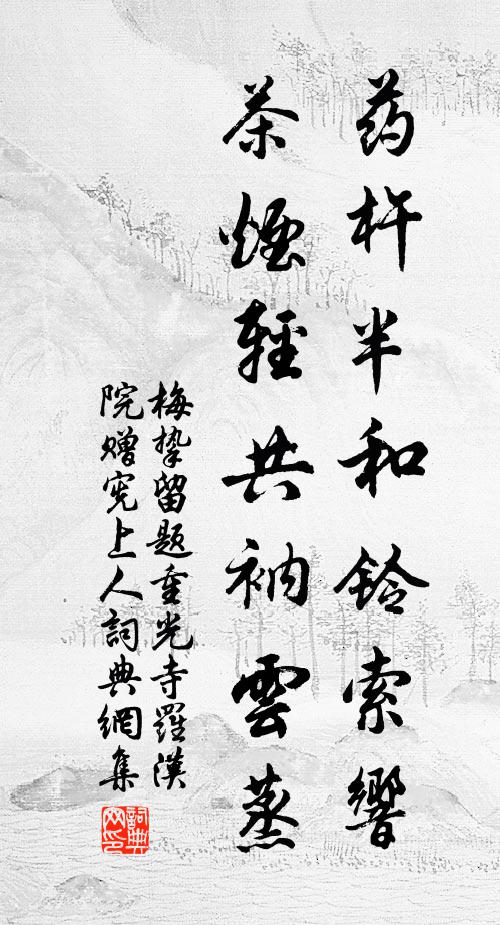 药杵半和鈴索響
茶煙輕共衲雲蒸
梅挚留題重光寺羅漢
院赠宪上人詞典網集
詞典
网印